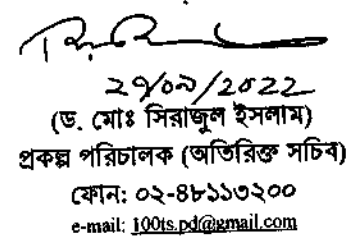 ২৭/০৯/2022
(ড. মোঃ সিরাজুল ইসলাম)
প্রকল্প পরিচালক (অতিরিক্ত সচিব)
ফোন: ০২-৪৮১১৩২০০
e-mail: 100ts.pd@gmail.com